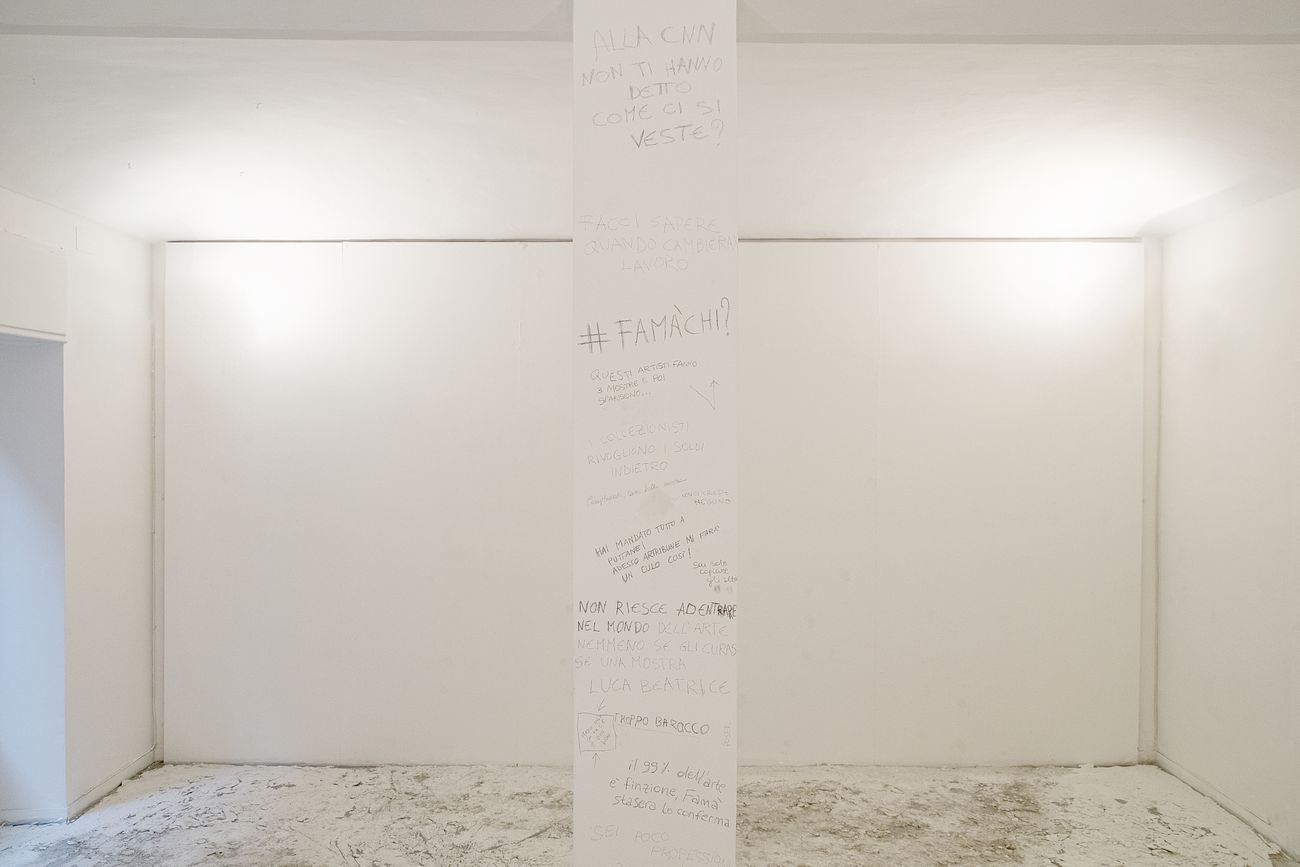 ALLA CNN
NON TI HANNO
DETTO
COME CI SI
VESTE?
FACCI SAPERE
QUANDO CAMBIERAI
LAVORO
#FAMÀCHI?
QUESTI ARTISTI FANNO
3 MOSTRE E POI
SPARISCONO...
I COLLEZIONISTI
RIVOGLIONO I SOLDI
INDIETRO
HAI MANDATO TUTTO A
PUTTANE!
ADESSO ARTRIBUNE MI FARA'
UN CULO COSI'!
Sai solo
copiare
gli altri
NON RIESCE AD ENTRARE
NEL MONDO DELL'ARTE
NEMMENO SE GLI CURAS
SE UNA MOSTRA
LUCA BEATRICE
TROPPO BAROCCO
il 99% dell'arte
è finzione, Famà
stasera lo conferma
SEI POCO
PROFESSION